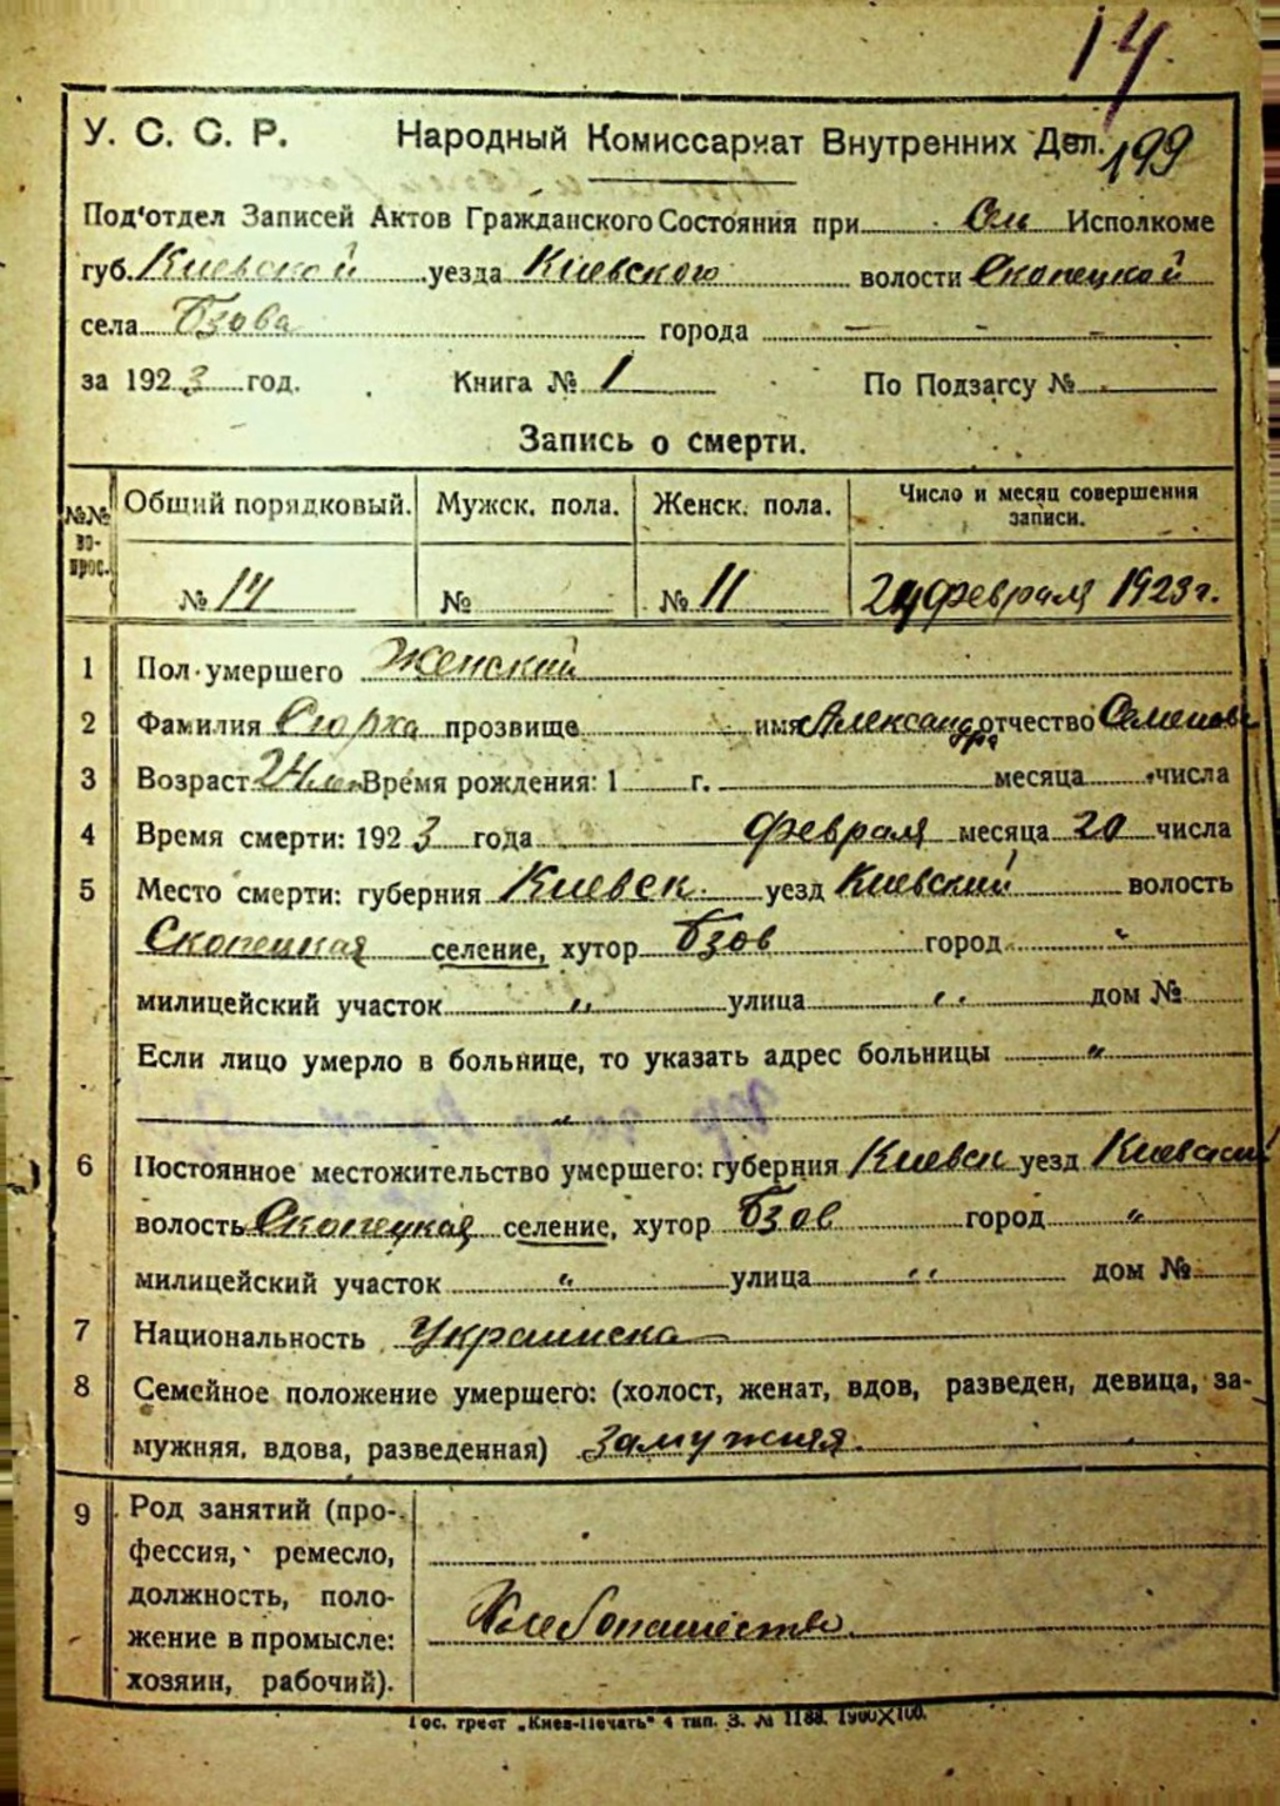 14
У. С. С. Р. Народный Комиссариат Внутренних Дел. 199
Под'отдел Записей Актов Гражданского Состояния при Сель Исполкоме
губ. Киевской уезда Киевского волости Скопецкой
села Бзова города —
за 1923 год. Книга № 1 По Подзагсу №
Запись о смерти.
№№ во-прос. Общий порядковый. Мужск. пола. Женск. пола. Число и месяц совершения записи.
№ 14 № № 11 24 февраля 1923 г.
1 Пол умершего Женский
2 Фамилия прозвище имя Александра отчество Семенова
3 Возраст 24 лет Время рождения: 1 г. месяца числа
4 Время смерти: 1923 года февраля месяца 20 числа
5 Место смерти: губерния Киевск. уезд Киевский волость
Скопецкая селение, хутор Бзов город "
милицейский участок " улица " дом №
Если лицо умерло в больнице, то указать адрес больницы "
"
6 Постоянное местожительство умершего: губерния Киевск уезд Киевский
волость Скопецкая селение, хутор Бзов город "
милицейский участок " улица " дом №
7 Национальность Украинска
8 Семейное положение умершего: (холост, женат, вдов, разведен, девица, за-
мужняя, вдова, разведенная) Замужняя.
9 Род занятий (про-
фессия, ремесло,
должность, поло-
жение в промысле:
хозяин, рабочий).
Хлебопашество.
Гос. трест „Киев-Печать" 4 тип. З. № 1188. 1900×100.